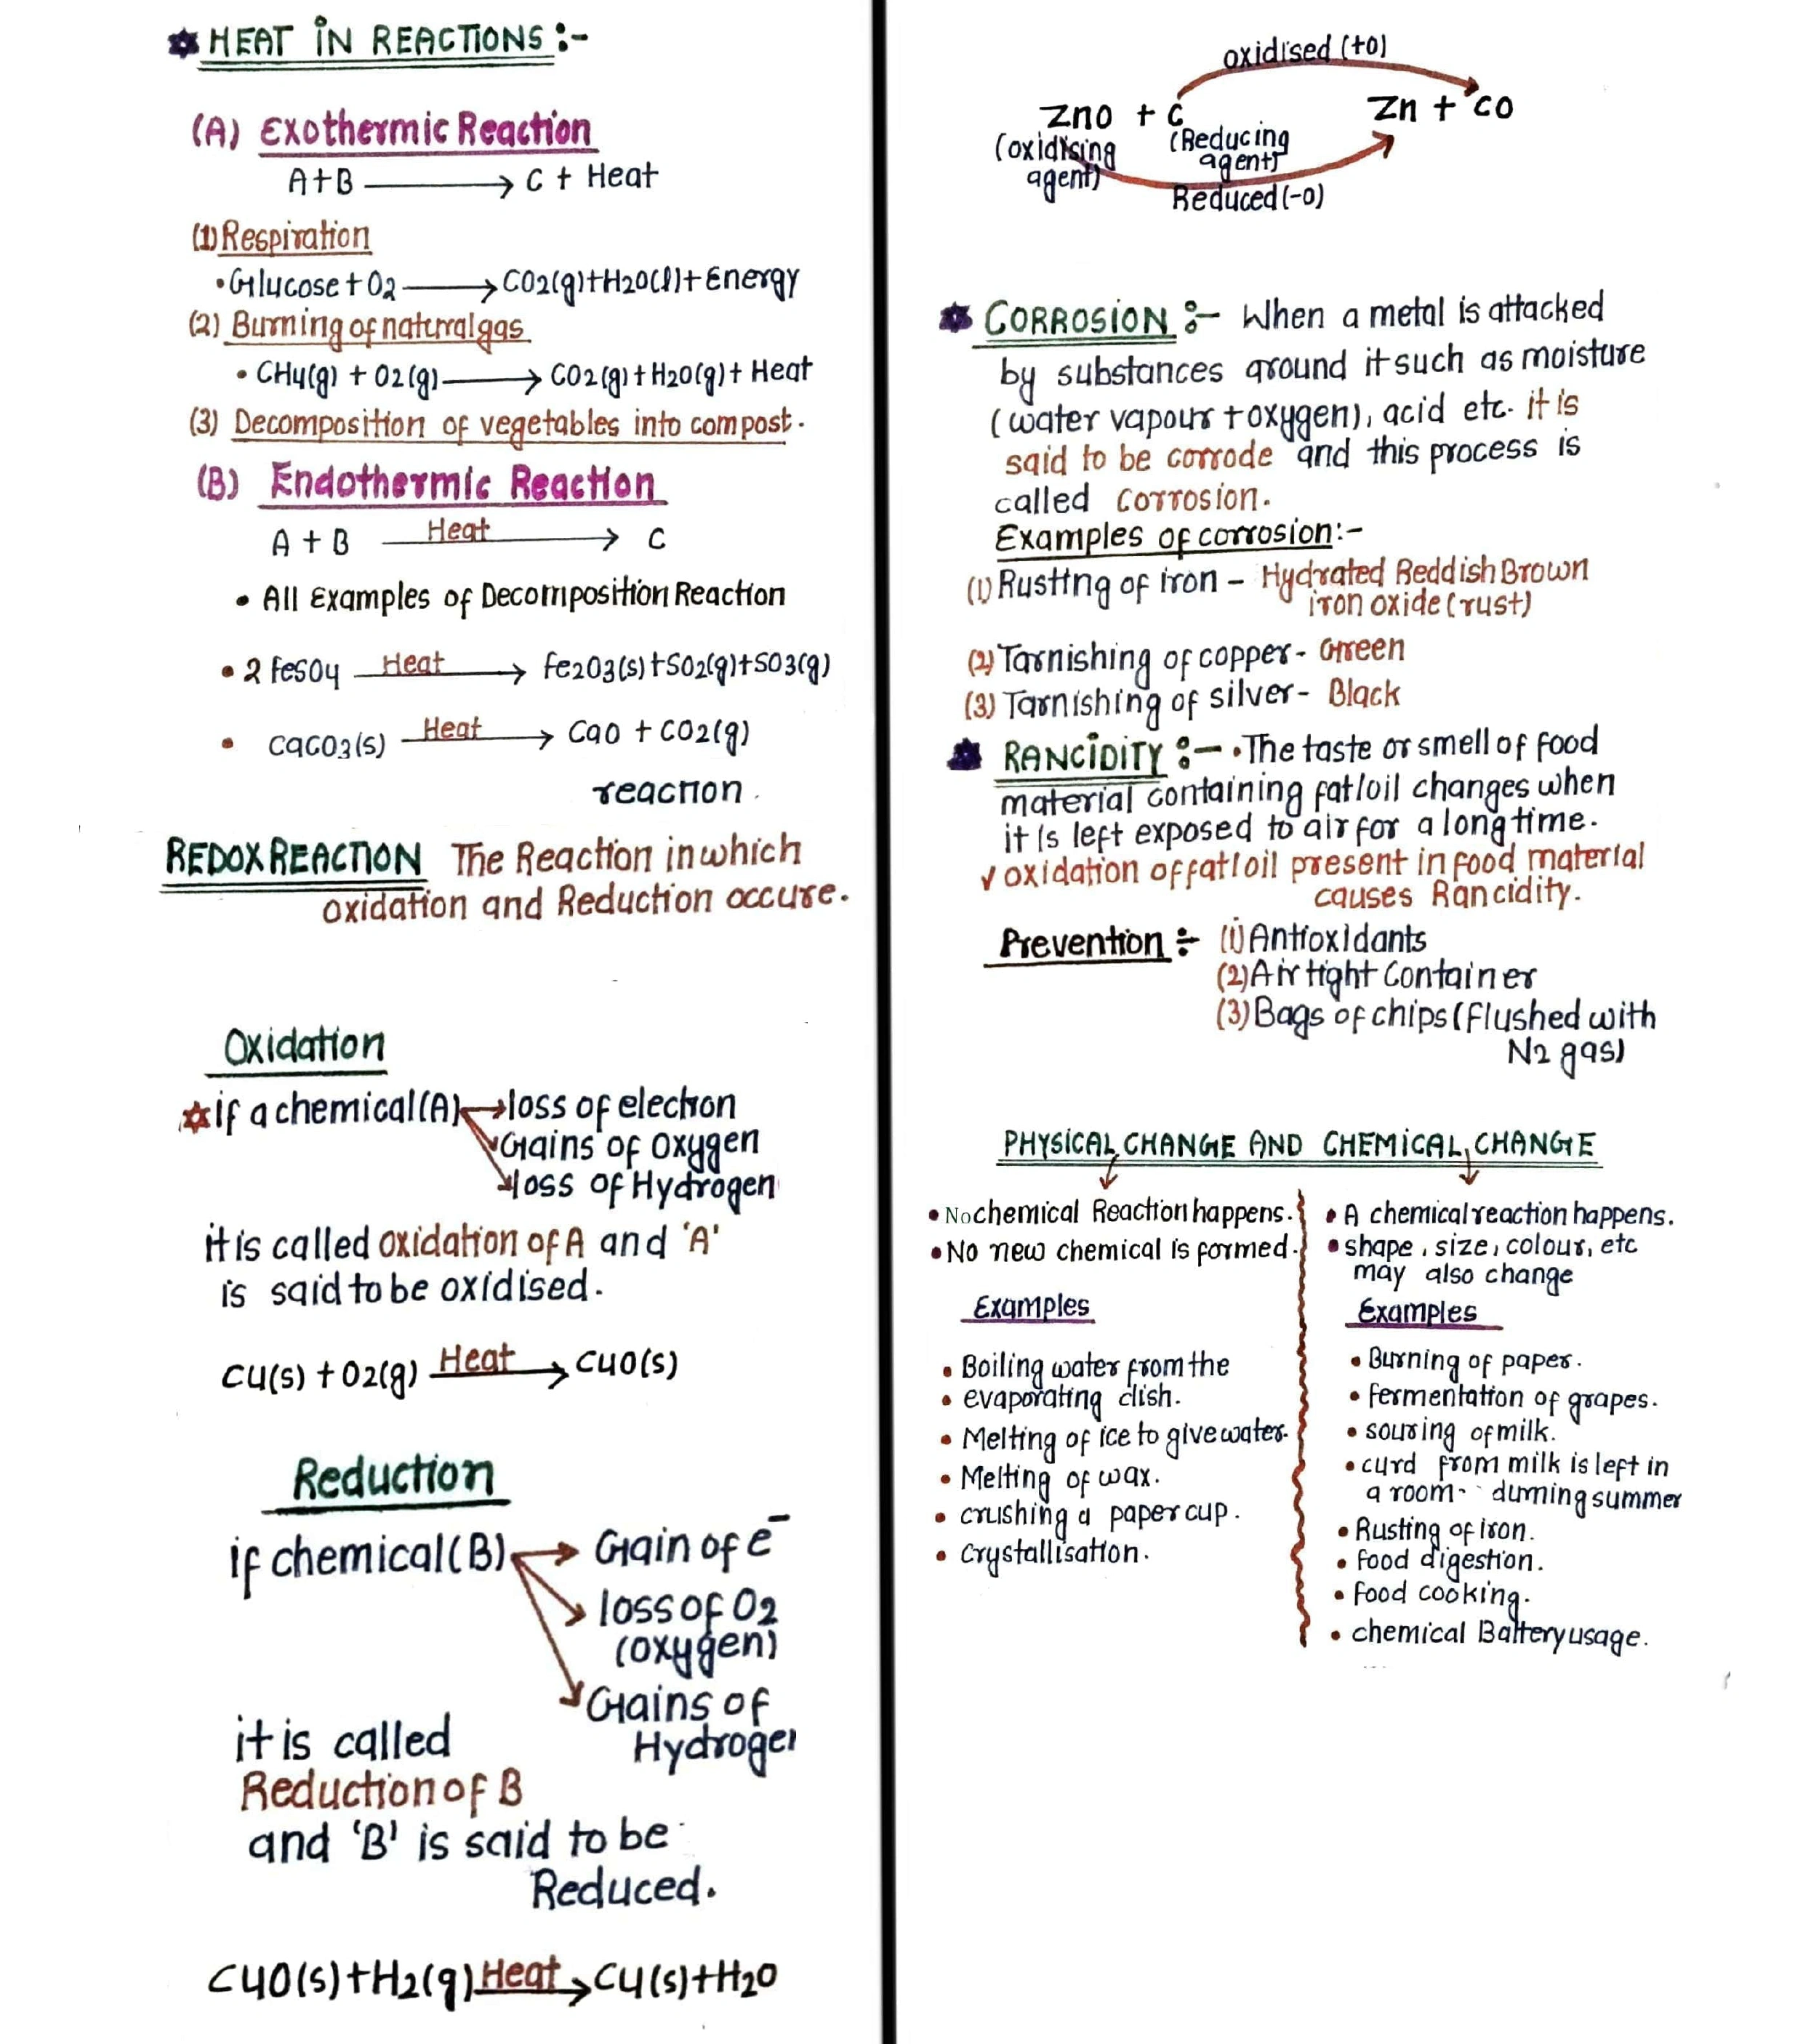 HEAT IN REACTIONS :-
(A) Exothermic Reaction
A+B ⟶ C + Heat
(1) Respiration
• Glucose + O2 ⟶ CO2(g)+H2O(l)+Energy
(2) Burning of natural gas
• CH4(g) + O2(g) ⟶ CO2(g)+H2O(g)+ Heat
(3) Decomposition of vegetables into compost.
(B) Endothermic Reaction
A + B Heat ⟶ C
• All Examples of Decomposition Reaction
• 2 FeSO4 Heat ⟶ Fe2O3(s)+SO2(g)+SO3(g)
• CaCO3(s) Heat ⟶ CaO + CO2(g)
reaction.
REDOX REACTION The Reaction in which
oxidation and Reduction occure.
Oxidation
if a chemical(A) → loss of electron
Gains of oxygen
loss of Hydrogen
it is called oxidation of A and 'A'
is said to be oxidised.
Cu(s) + O2(g) Heat ⟶ CuO(s)
Reduction
if chemical(B) → Gain of e⁻
loss of O2
(oxygen)
Gains of
Hydrogen
it is called
Reduction of B
and 'B' is said to be
Reduced.
CuO(s)+H2(g) Heat ⟶ Cu(s)+H2O
oxidised (+O)
ZnO + C Zn + CO
(oxidising agent) (Reducing agent)
Reduced (-O)
CORROSION :- When a metal is attacked
by substances around it such as moisture
(water vapour + oxygen), acid etc. it is
said to be corrode and this process is
called corrosion.
Examples of corrosion:-
(1) Rusting of iron - Hydrated Reddish Brown
iron oxide (rust)
(2) Tarnishing of copper - Green
(3) Tarnishing of silver - Black
RANCIDITY :- • The taste or smell of food
material containing fat/oil changes when
it is left exposed to air for a long time.
✓ oxidation of fat/oil present in food material
causes Rancidity.
Prevention :- (1) Antioxidants
(2) Air tight Container
(3) Bags of chips (Flushed with
N2 gas)
PHYSICAL CHANGE AND CHEMICAL CHANGE
• No chemical Reaction happens.
• No new chemical is formed.
Examples
• Boiling water from the
• evaporating dish.
• Melting of ice to give water.
• Melting of wax.
• crushing a paper cup.
• crystallisation.
• A chemical reaction happens.
• shape, size, colour, etc
may also change
Examples
• Burning of paper.
• fermentation of grapes.
• souring of milk.
• curd from milk is left in
a room during summer
• Rusting of iron.
• food digestion.
• food cooking.
• chemical Battery usage.